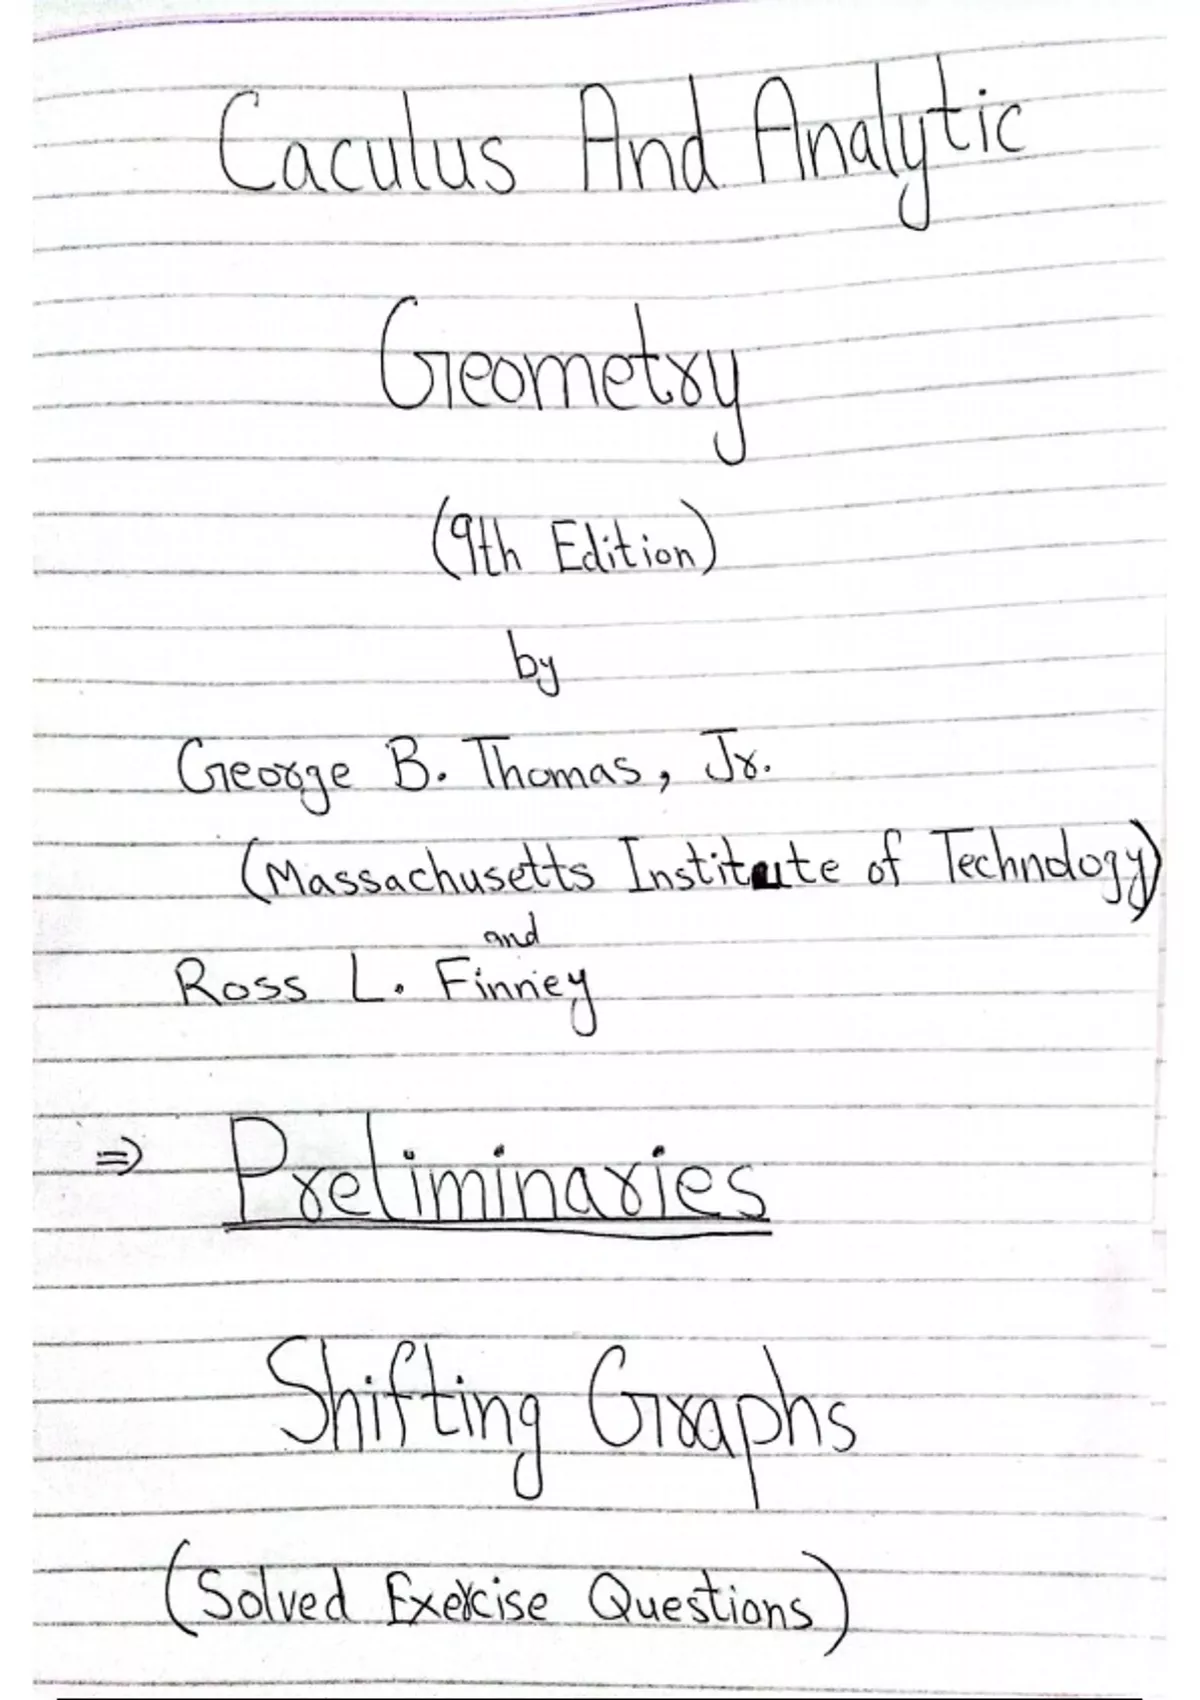 Caculus And Analytic
Geometry
(9th Edition)
by
George B. Thomas, Jr.
(Massachusetts Institute of Technology)
and
Ross L. Finney
⇒ Preliminaries
Shifting Graphs
(Solved Exercise Questions)